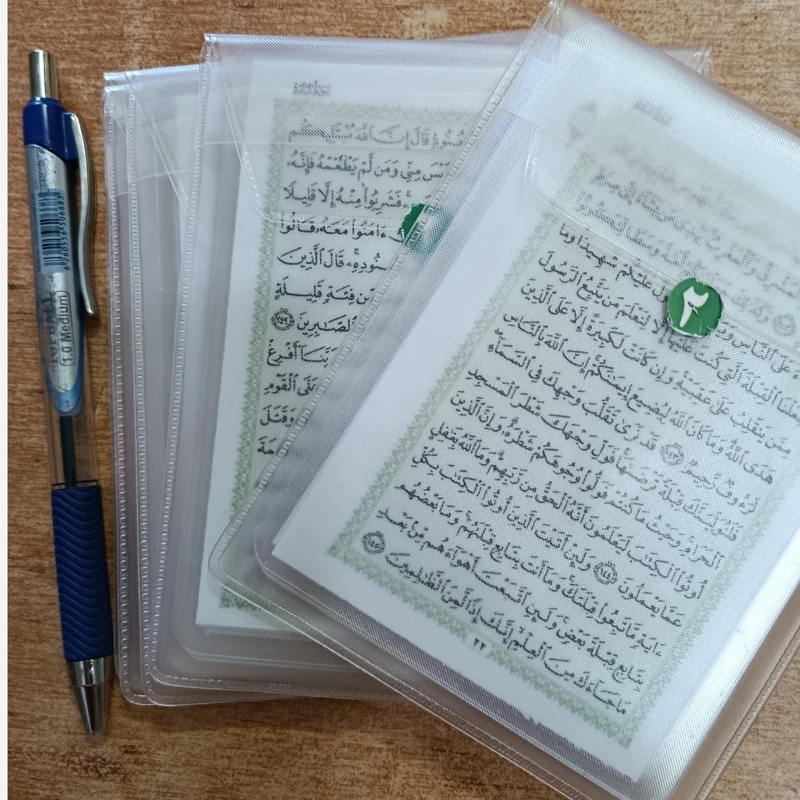 6260556506683
(1.0 Medium)
قَالَ إِنَّ ٱللَّهَ مُبْتَلِيكُم
مِنِّى وَمَن لَّمْ يَطْعَمْهُ فَإِنَّهُۥ
فَشَرِبُوا۟ مِنْهُ إِلَّا قَلِيلًا
ءَامَنُوا۟ مَعَهُۥ قَالُوا۟
قَالَ ٱلَّذِينَ
مِّن فِئَةٍ قَلِيلَةٍ
ٱلصَّٰبِرِينَ ٢٤٩
رَبَّنَآ أَفْرِغْ
عَلَى ٱلْقَوْمِ
وَقَتَلَ
٢
عَلَى ٱلنَّاسِ عَلَيْكُمْ شَهِيدًا وَمَا
جَعَلْنَا ٱلْقِبْلَةَ ٱلَّتِى كُنتَ عَلَيْهَآ إِلَّا لِنَعْلَمَ مَن يَتَّبِعُ ٱلرَّسُولَ
مِمَّن يَنقَلِبُ عَلَىٰ عَقِبَيْهِ وَإِن كَانَتْ لَكَبِيرَةً إِلَّا عَلَى ٱلَّذِينَ
هَدَى ٱللَّهُ وَمَا كَانَ ٱللَّهُ لِيُضِيعَ إِيمَٰنَكُمْ إِنَّ ٱللَّهَ بِٱلنَّاسِ
لَرَءُوفٌ رَّحِيمٌ ١٤٣ قَدْ نَرَىٰ تَقَلُّبَ وَجْهِكَ فِى ٱلسَّمَآءِ
فَلَنُوَلِّيَنَّكَ قِبْلَةً تَرْضَىٰهَا فَوَلِّ وَجْهَكَ شَطْرَ ٱلْمَسْجِدِ
ٱلْحَرَامِ وَحَيْثُ مَا كُنتُمْ فَوَلُّوا۟ وُجُوهَكُمْ شَطْرَهُۥ وَإِنَّ ٱلَّذِينَ
أُوتُوا۟ ٱلْكِتَٰبَ لَيَعْلَمُونَ أَنَّهُ ٱلْحَقُّ مِن رَّبِّهِمْ وَمَا ٱللَّهُ بِغَٰفِلٍ
عَمَّا يَعْمَلُونَ ١٤٤ وَلَئِنْ أَتَيْتَ ٱلَّذِينَ أُوتُوا۟ ٱلْكِتَٰبَ بِكُلِّ
ءَايَةٍ مَّا تَبِعُوا۟ قِبْلَتَكَ وَمَآ أَنتَ بِتَابِعٍ قِبْلَتَهُمْ وَمَا بَعْضُهُم
بِتَابِعٍ قِبْلَةَ بَعْضٍ وَلَئِنِ ٱتَّبَعْتَ أَهْوَآءَهُم مِّنۢ بَعْدِ
مَا جَآءَكَ مِنَ ٱلْعِلْمِ إِنَّكَ إِذًا لَّمِنَ ٱلظَّٰلِمِينَ ١٤٥
٢٢